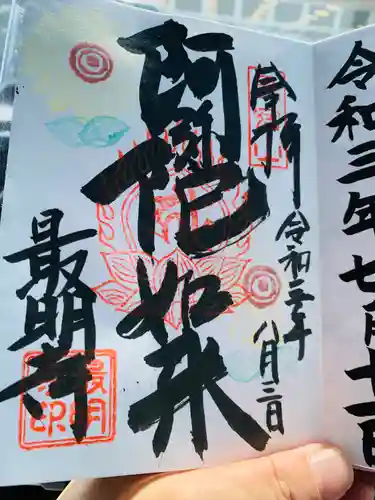 令和三年七月十一
奉拝
令和三年八月三日
阿彌陀如来
最明寺